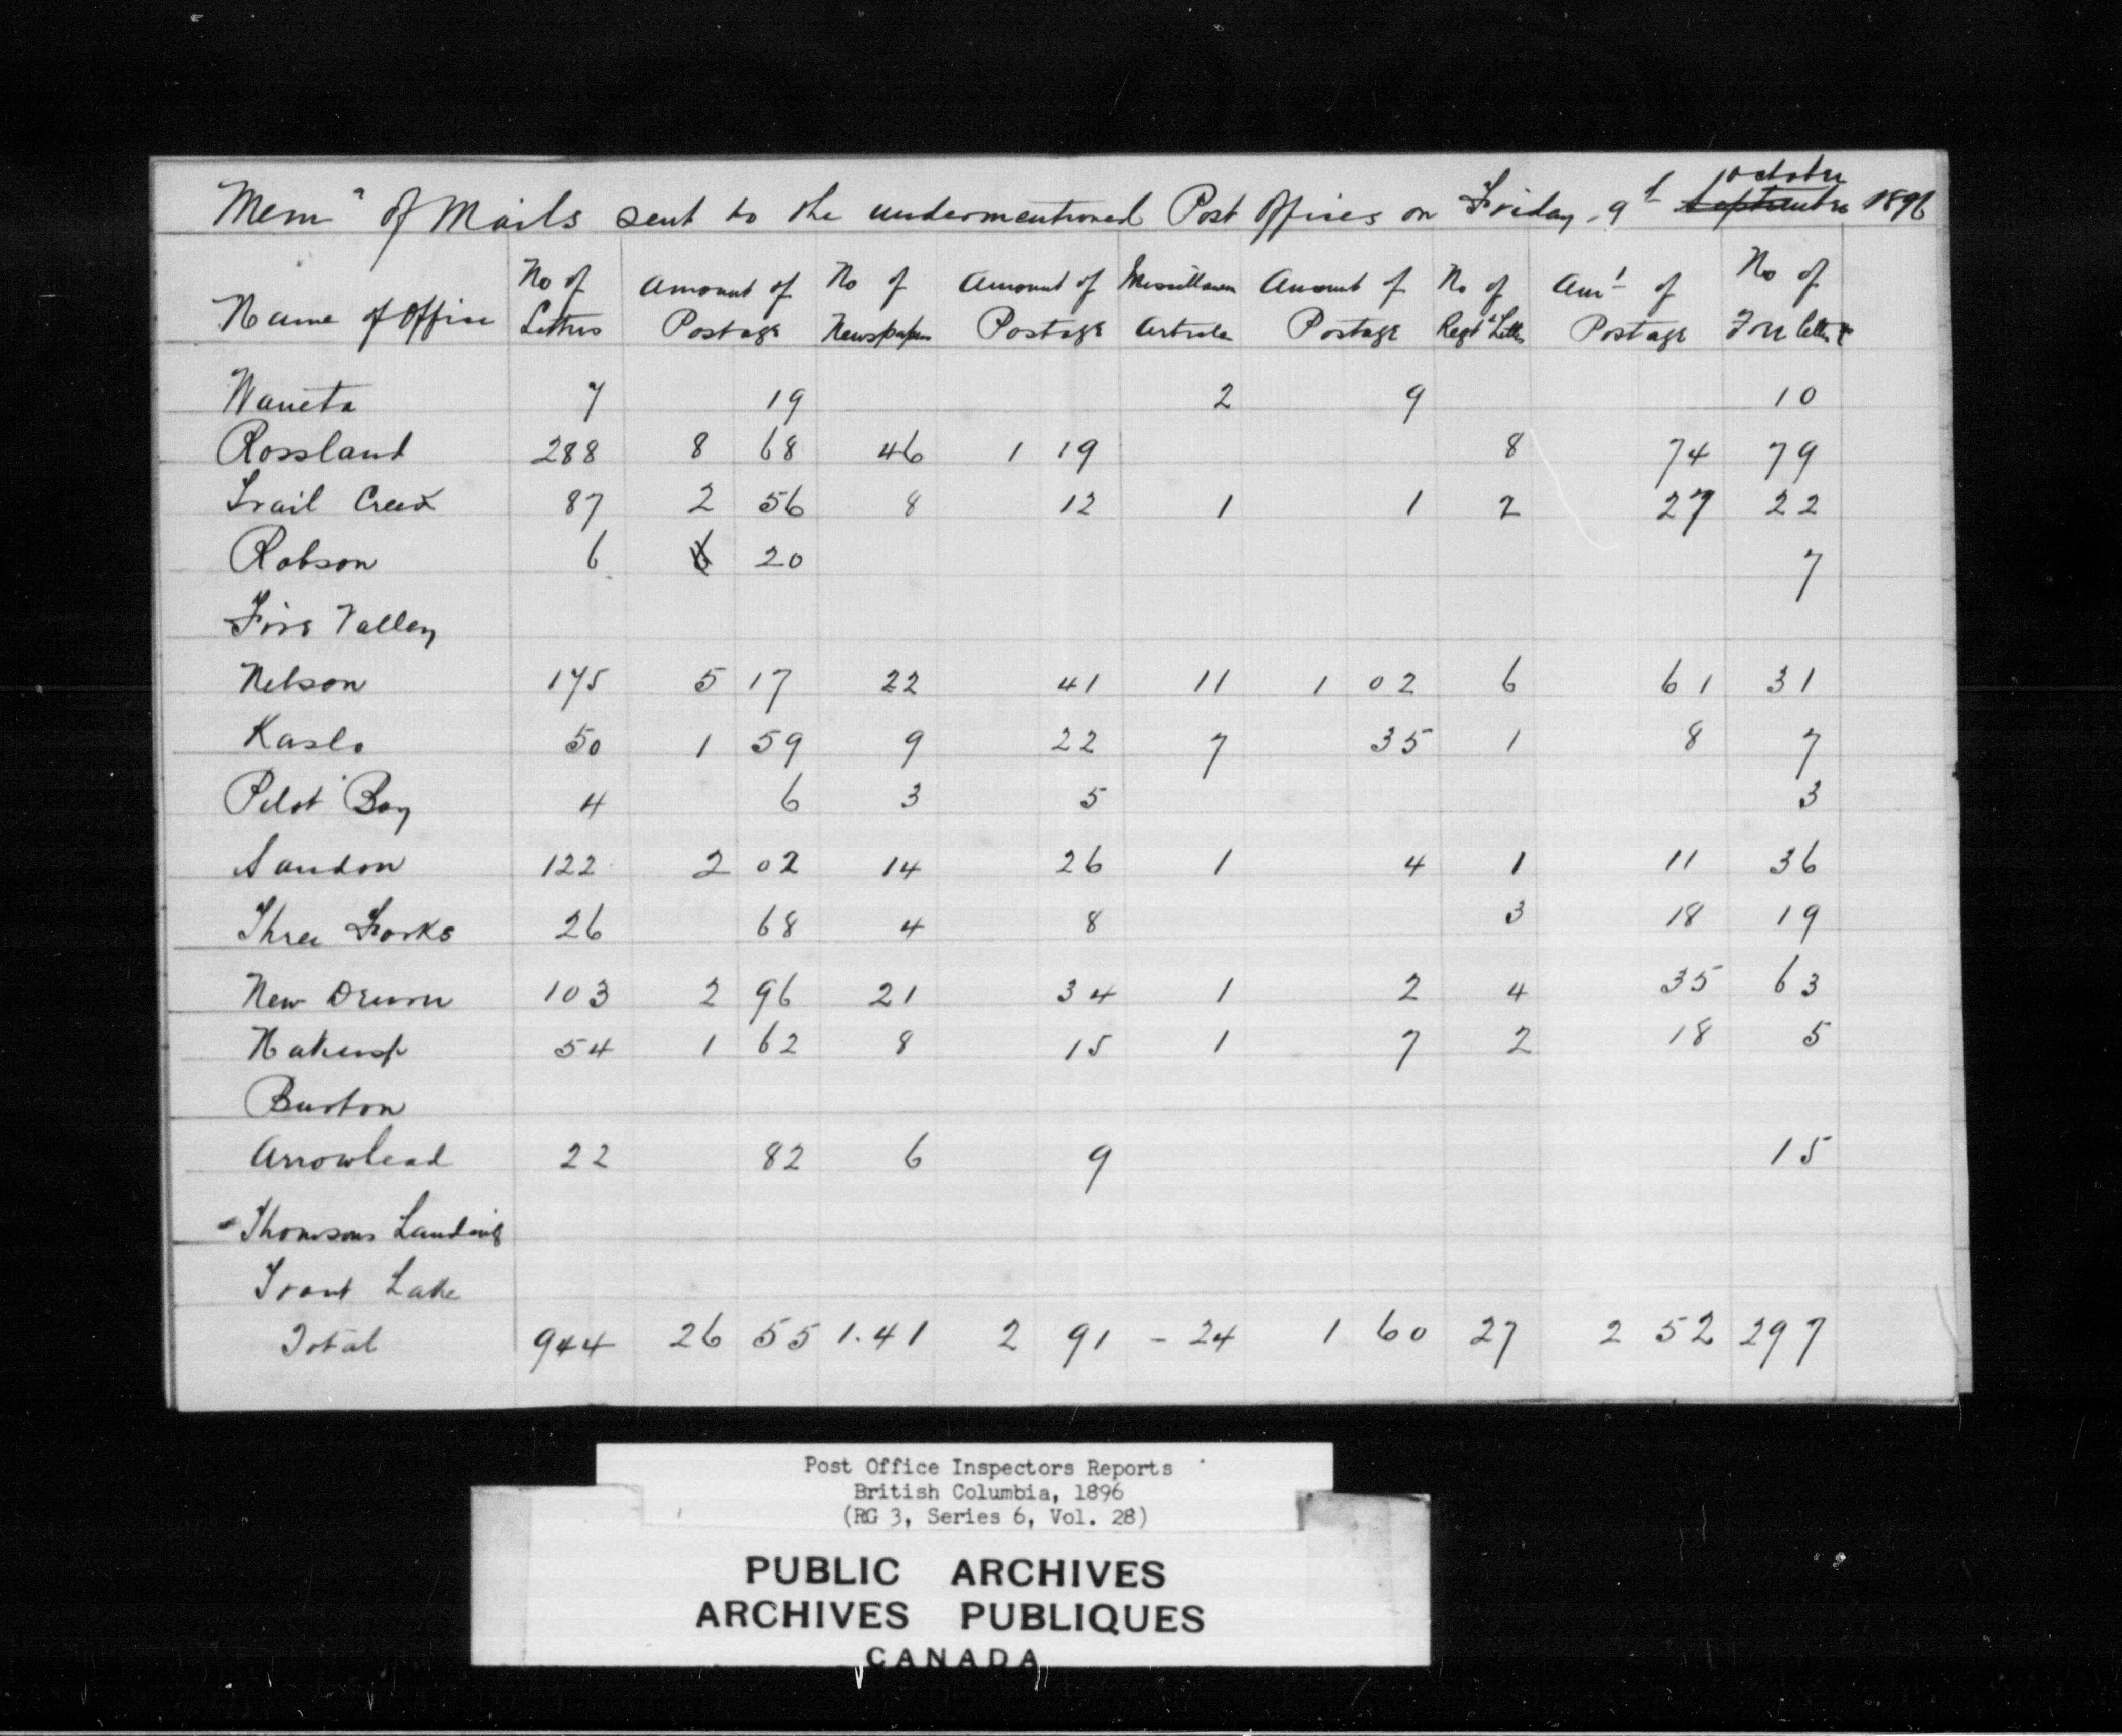 Mem° of Mails sent to the undermentioned Post Offices on Friday, 9th September October 1896
Name of Office No of Letters Amount of Postage No of Newspapers Amount of Postage Miscellaneous Articles Amount of Postage No of Regd Letters Amt of Postage No of Free letters &c
Waneta 7 19 2 9 10
Rossland 288 8 68 46 1 19 8 74 79
Trail Creek 87 2 56 8 12 1 1 2 27 22
Robson 6 20 7
Fire Valley
Nelson 175 5 17 22 41 11 1 02 6 61 31
Kaslo 50 1 59 9 22 7 35 1 8 7
Pilot Bay 4 6 3 5 3
Sandon 122 2 02 14 26 1 4 1 11 36
Three Forks 26 68 4 8 3 18 19
New Denver 103 2 96 21 34 1 2 4 35 63
Nakusp 54 1 62 8 15 1 7 2 18 5
Burton
Arrowhead 22 82 6 9 15
Thomsons Landing
Trout Lake
Total 944 26 55 1.41 2 91 - 24 1 60 27 2 52 297
Post Office Inspectors Reports
British Columbia, 1896
(RG 3, Series 6, Vol. 28)
PUBLIC ARCHIVES
ARCHIVES PUBLIQUES
CANADA